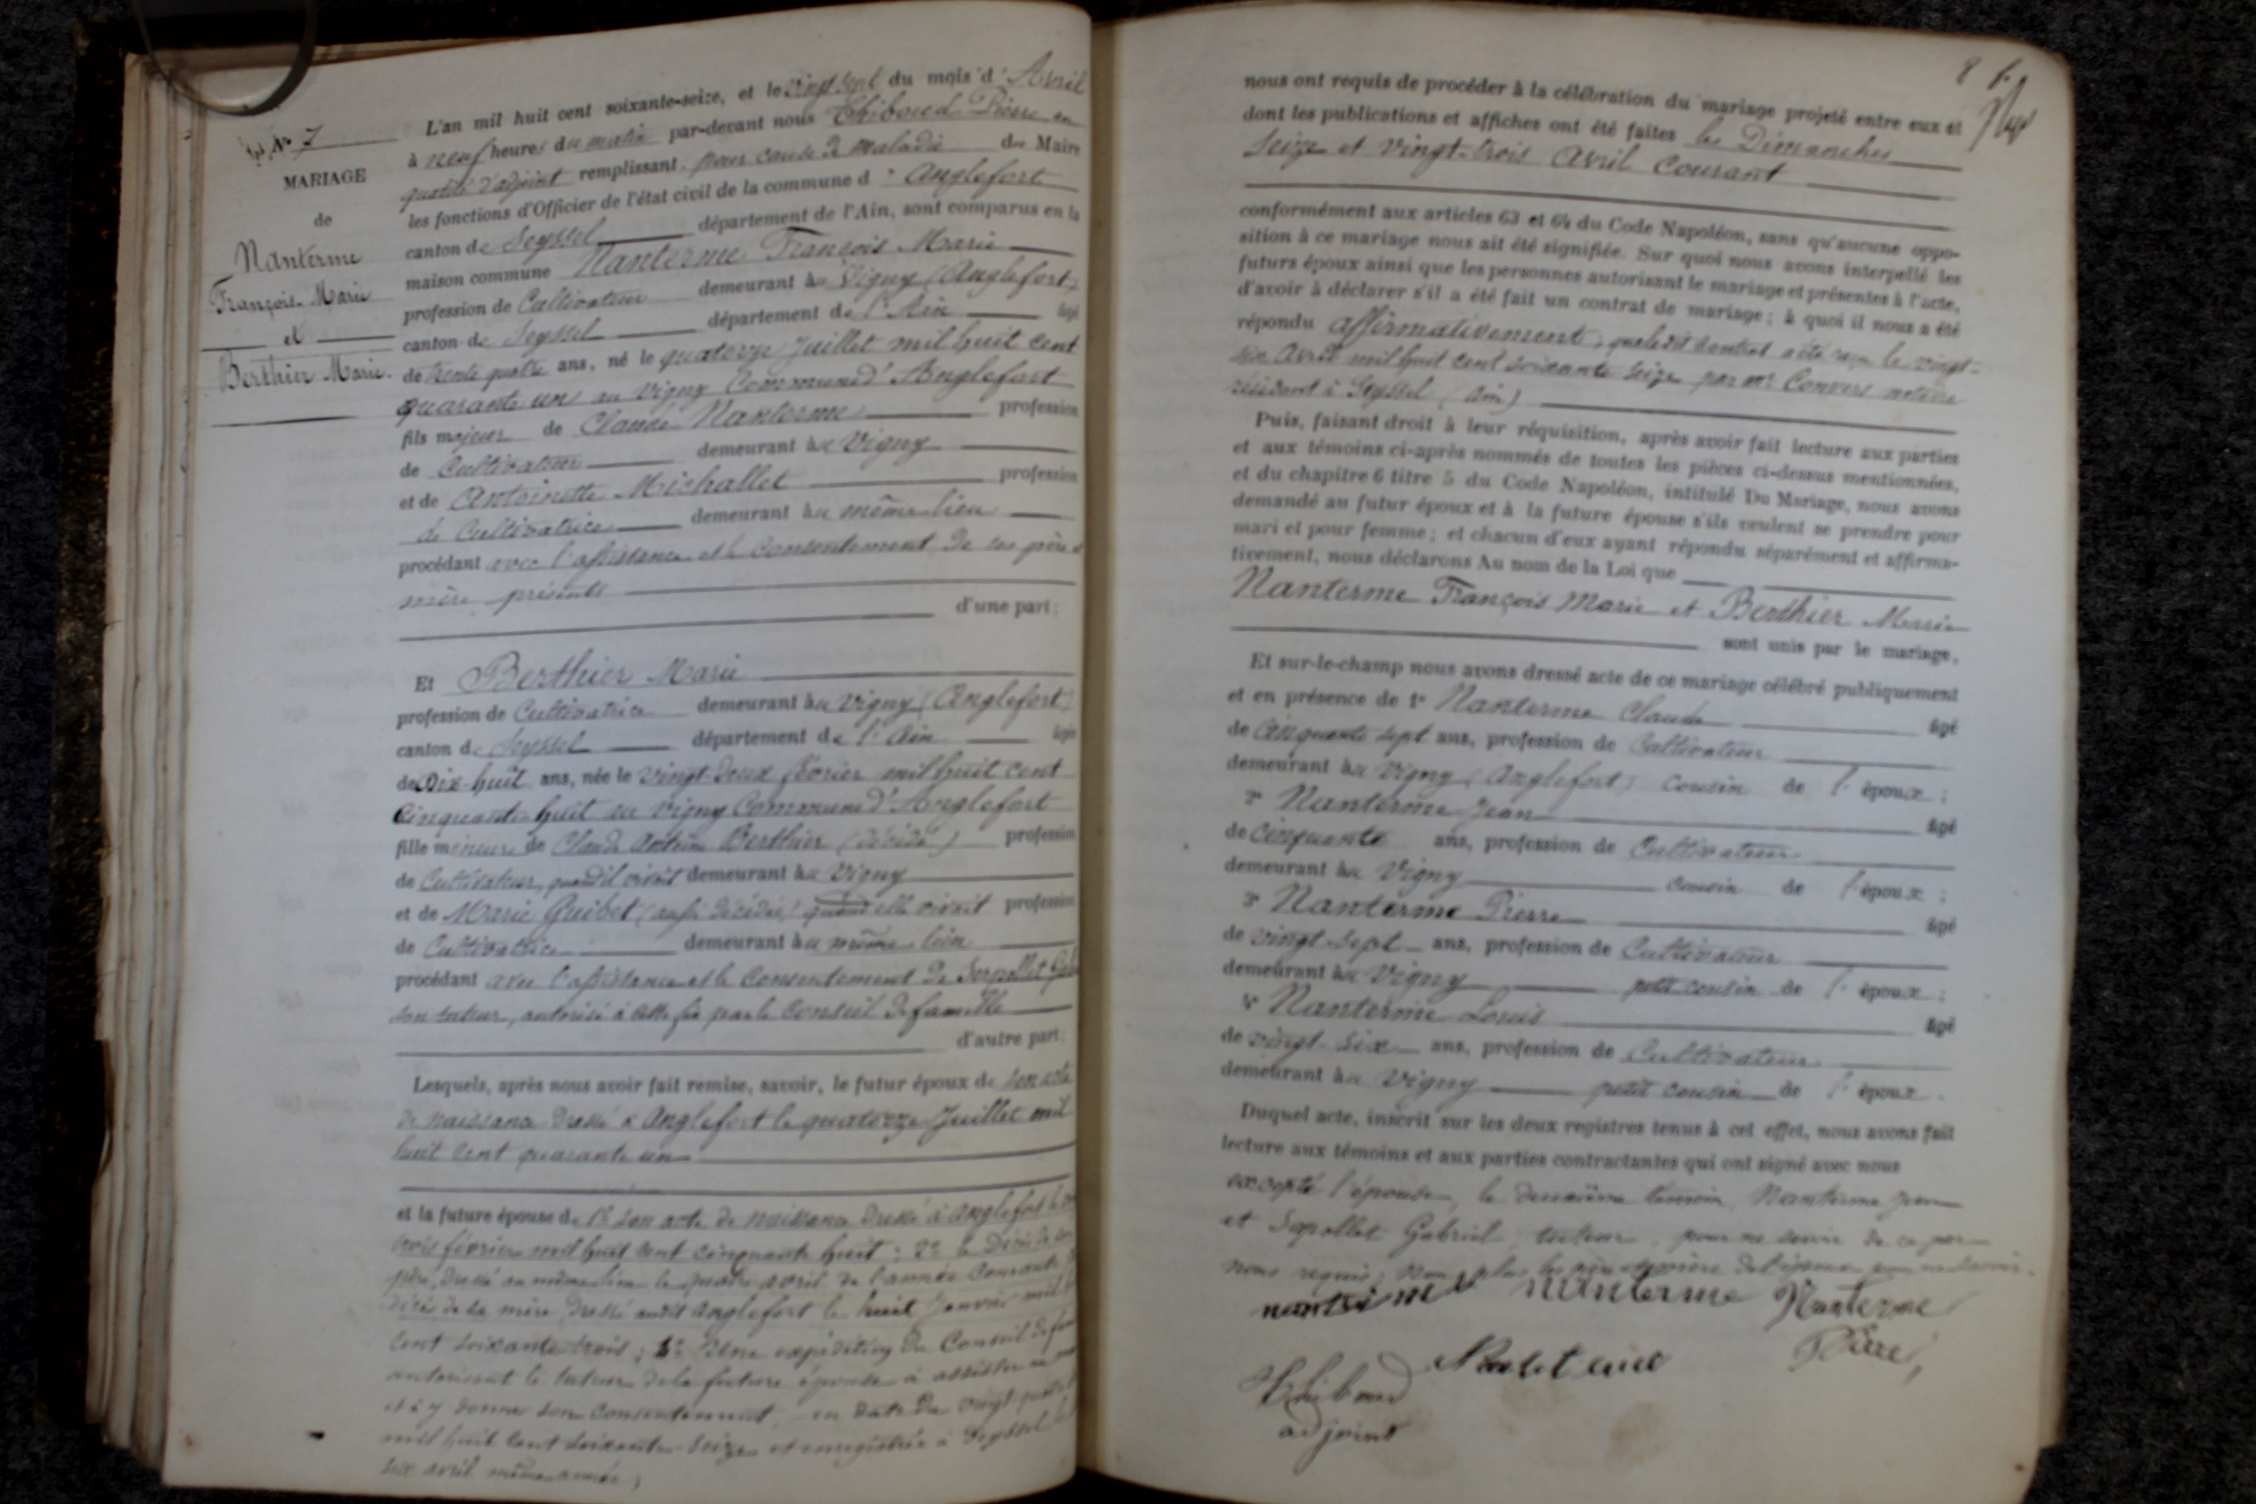 N° 7
MARIAGE
de
Nanterme
François Marie
et
Berthier Marie
L'an mil huit cent soixante-seize, et le vingt sept du mois d'Avril
à neuf heures du matin par-devant nous Thiboud Pierre en
qualité d'adjoint remplissant pour cause de maladie du Maire
les fonctions d'Officier de l'état civil de la commune d'Anglefort
canton de Seyssel département de l'Ain, sont comparus en la
maison commune Nanterme François Marie
profession de Cultivateur demeurant à Vigny (Anglefort)
canton de Seyssel département de l'Ain âgé
de trente quatre ans, né le quatorze Juillet mil huit cent
quarante un au Vigny Commune d'Anglefort
fils majeur de Claude Nanterme profession
de Cultivateur demeurant au Vigny
et de Antoinette Michallet profession
de Cultivatrice demeurant au même lieu
procédant avec l'assistance et le consentement de ses père et
mère présents
d'une part;
Et Berthier Marie
profession de Cultivatrice demeurant au Vigny (Anglefort)
canton de Seyssel département de l'Ain âgée
de Dix-huit ans, née le vingt-deux février mil huit cent
cinquante-huit au Vigny Commune d'Anglefort
fille mineure de Claude Antoine Berthier (décédé) profession
de Cultivateur, quand il vivait demeurant au Vigny
et de Marie Guibet (aussi décédée) quand elle vivait profession
de Cultivatrice demeurant au même lieu
procédant avec l'assistance et le consentement de
son tuteur, autorisé à cette fin par le Conseil de famille
d'autre part.
Lesquels, après nous avoir fait remise, savoir, le futur époux de son acte
de naissance dressé à Anglefort le quatorze Juillet mil
huit cent quarante un
et la future épouse de 1° son acte de naissance dressé à Anglefort le
trois février mil huit cent cinquante huit; 2° le Décès de son
père, dressé au même lieu le quatre avril de l'année courante
décès de sa mère dressé audit Anglefort le huit Janvier mil
cent soixante trois; Une expédition du Conseil de
autorisant le tuteur de la future épouse à assister
et à y donner son consentement, en date du vingt
mil huit cent soixante-seize et enregistrée à Seyssel le
six avril même année;
nous ont requis de procéder à la célébration du mariage projeté entre eux et
dont les publications et affiches ont été faites les Dimanches
Seize et Vingt-trois Avril Courant
conformément aux articles 63 et 64 du Code Napoléon, sans qu'aucune oppo-
sition à ce mariage nous ait été signifiée. Sur quoi nous avons interpellé les
futurs époux ainsi que les personnes autorisant le mariage et présentes à l'acte,
d'avoir à déclarer s'il a été fait un contrat de mariage; à quoi il nous a été
répondu affirmativement, que ledit Contrat a été reçu le vingt-
six Avril mil huit cent soixante seize par Mr Convers notaire
résidant à Seyssel (Ain)
Puis, faisant droit à leur réquisition, après avoir fait lecture aux parties
et aux témoins ci-après nommés de toutes les pièces ci-dessus mentionnées,
et du chapitre 6 titre 5 du Code Napoléon, intitulé Du Mariage, nous avons
demandé au futur époux et à la future épouse s'ils veulent se prendre pour
mari et pour femme; et chacun d'eux ayant répondu séparément et affirma-
tivement, nous déclarons Au nom de la Loi que
Nanterme François Marie et Berthier Marie
sont unis par le mariage,
Et sur-le-champ nous avons dressé acte de ce mariage célébré publiquement
et en présence de 1° Nanterme Claude âgé
de Cinquante sept ans, profession de Cultivateur
demeurant au Vigny (Anglefort) cousin de l'époux;
2° Nanterme Jean âgé
de Cinquante ans, profession de Cultivateur
demeurant au Vigny cousin de l'époux;
3° Nanterme Pierre âgé
de vingt sept ans, profession de Cultivateur
demeurant au Vigny petit cousin de l'époux;
4° Nanterme Louis âgé
de vingt-six ans, profession de Cultivateur
demeurant au Vigny petit cousin de l'époux.
Duquel acte, inscrit sur les deux registres tenus à cet effet, nous avons fait
lecture aux témoins et aux parties contractantes qui ont signé avec nous
excepté l'épouse, le deuxième témoin Nanterme Jean
et Gabriel tuteur, pour ne savoir de ce par
nous requis;
Nanterme Nanterme
Pierre
Thiboud
adjoint